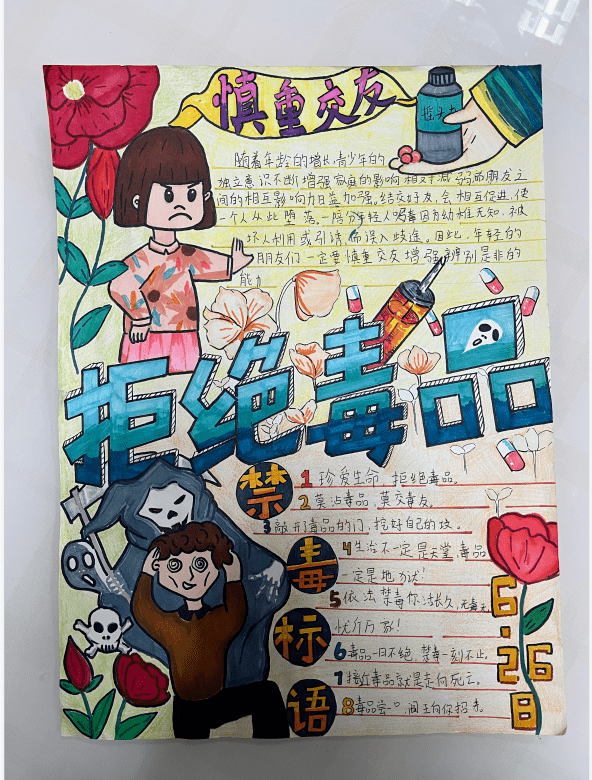 慎重交友
摇头丸
随着年龄的增长,青少年的
独立意识不断增强家庭的影响相对减弱而朋友之
间的相互影响力日益加强。结交好友,会相互促进,使
一个人从此堕落。一陪分年轻人吸毒因为幼稚无知、被
坏人利用或引诱,而误入歧途。因此,年轻的
朋友们一定要慎重交友增强辨别是非的
能力
拒绝毒品
禁毒标语
1 珍爱生命,拒绝毒品。
2 莫沾毒品,莫交毒友。
3 敲开毒品的门,挖好自己的坟。
4 生活不一定是天堂,毒品
一定是地狱!
5 依法禁毒你活长久,无毒无
忧行万家!
6 毒品一日不绝,禁毒一刻不止。
7 接近毒品就是走向死亡。
8 毒品尝一口,阎王向你招手。
6.26
8